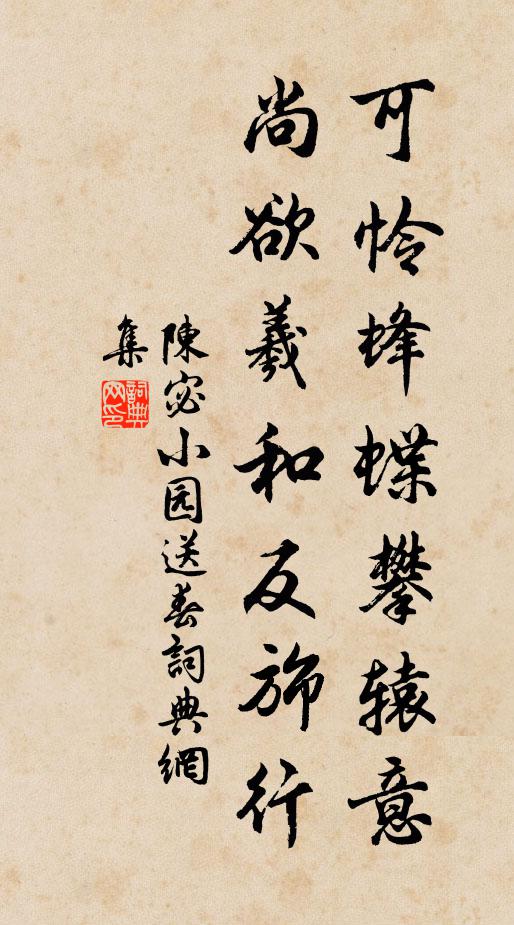 可怜蜂蝶攀辕意
尚欲羲和反旆行
陳宓小园送春詞典網
集
詞典
网印